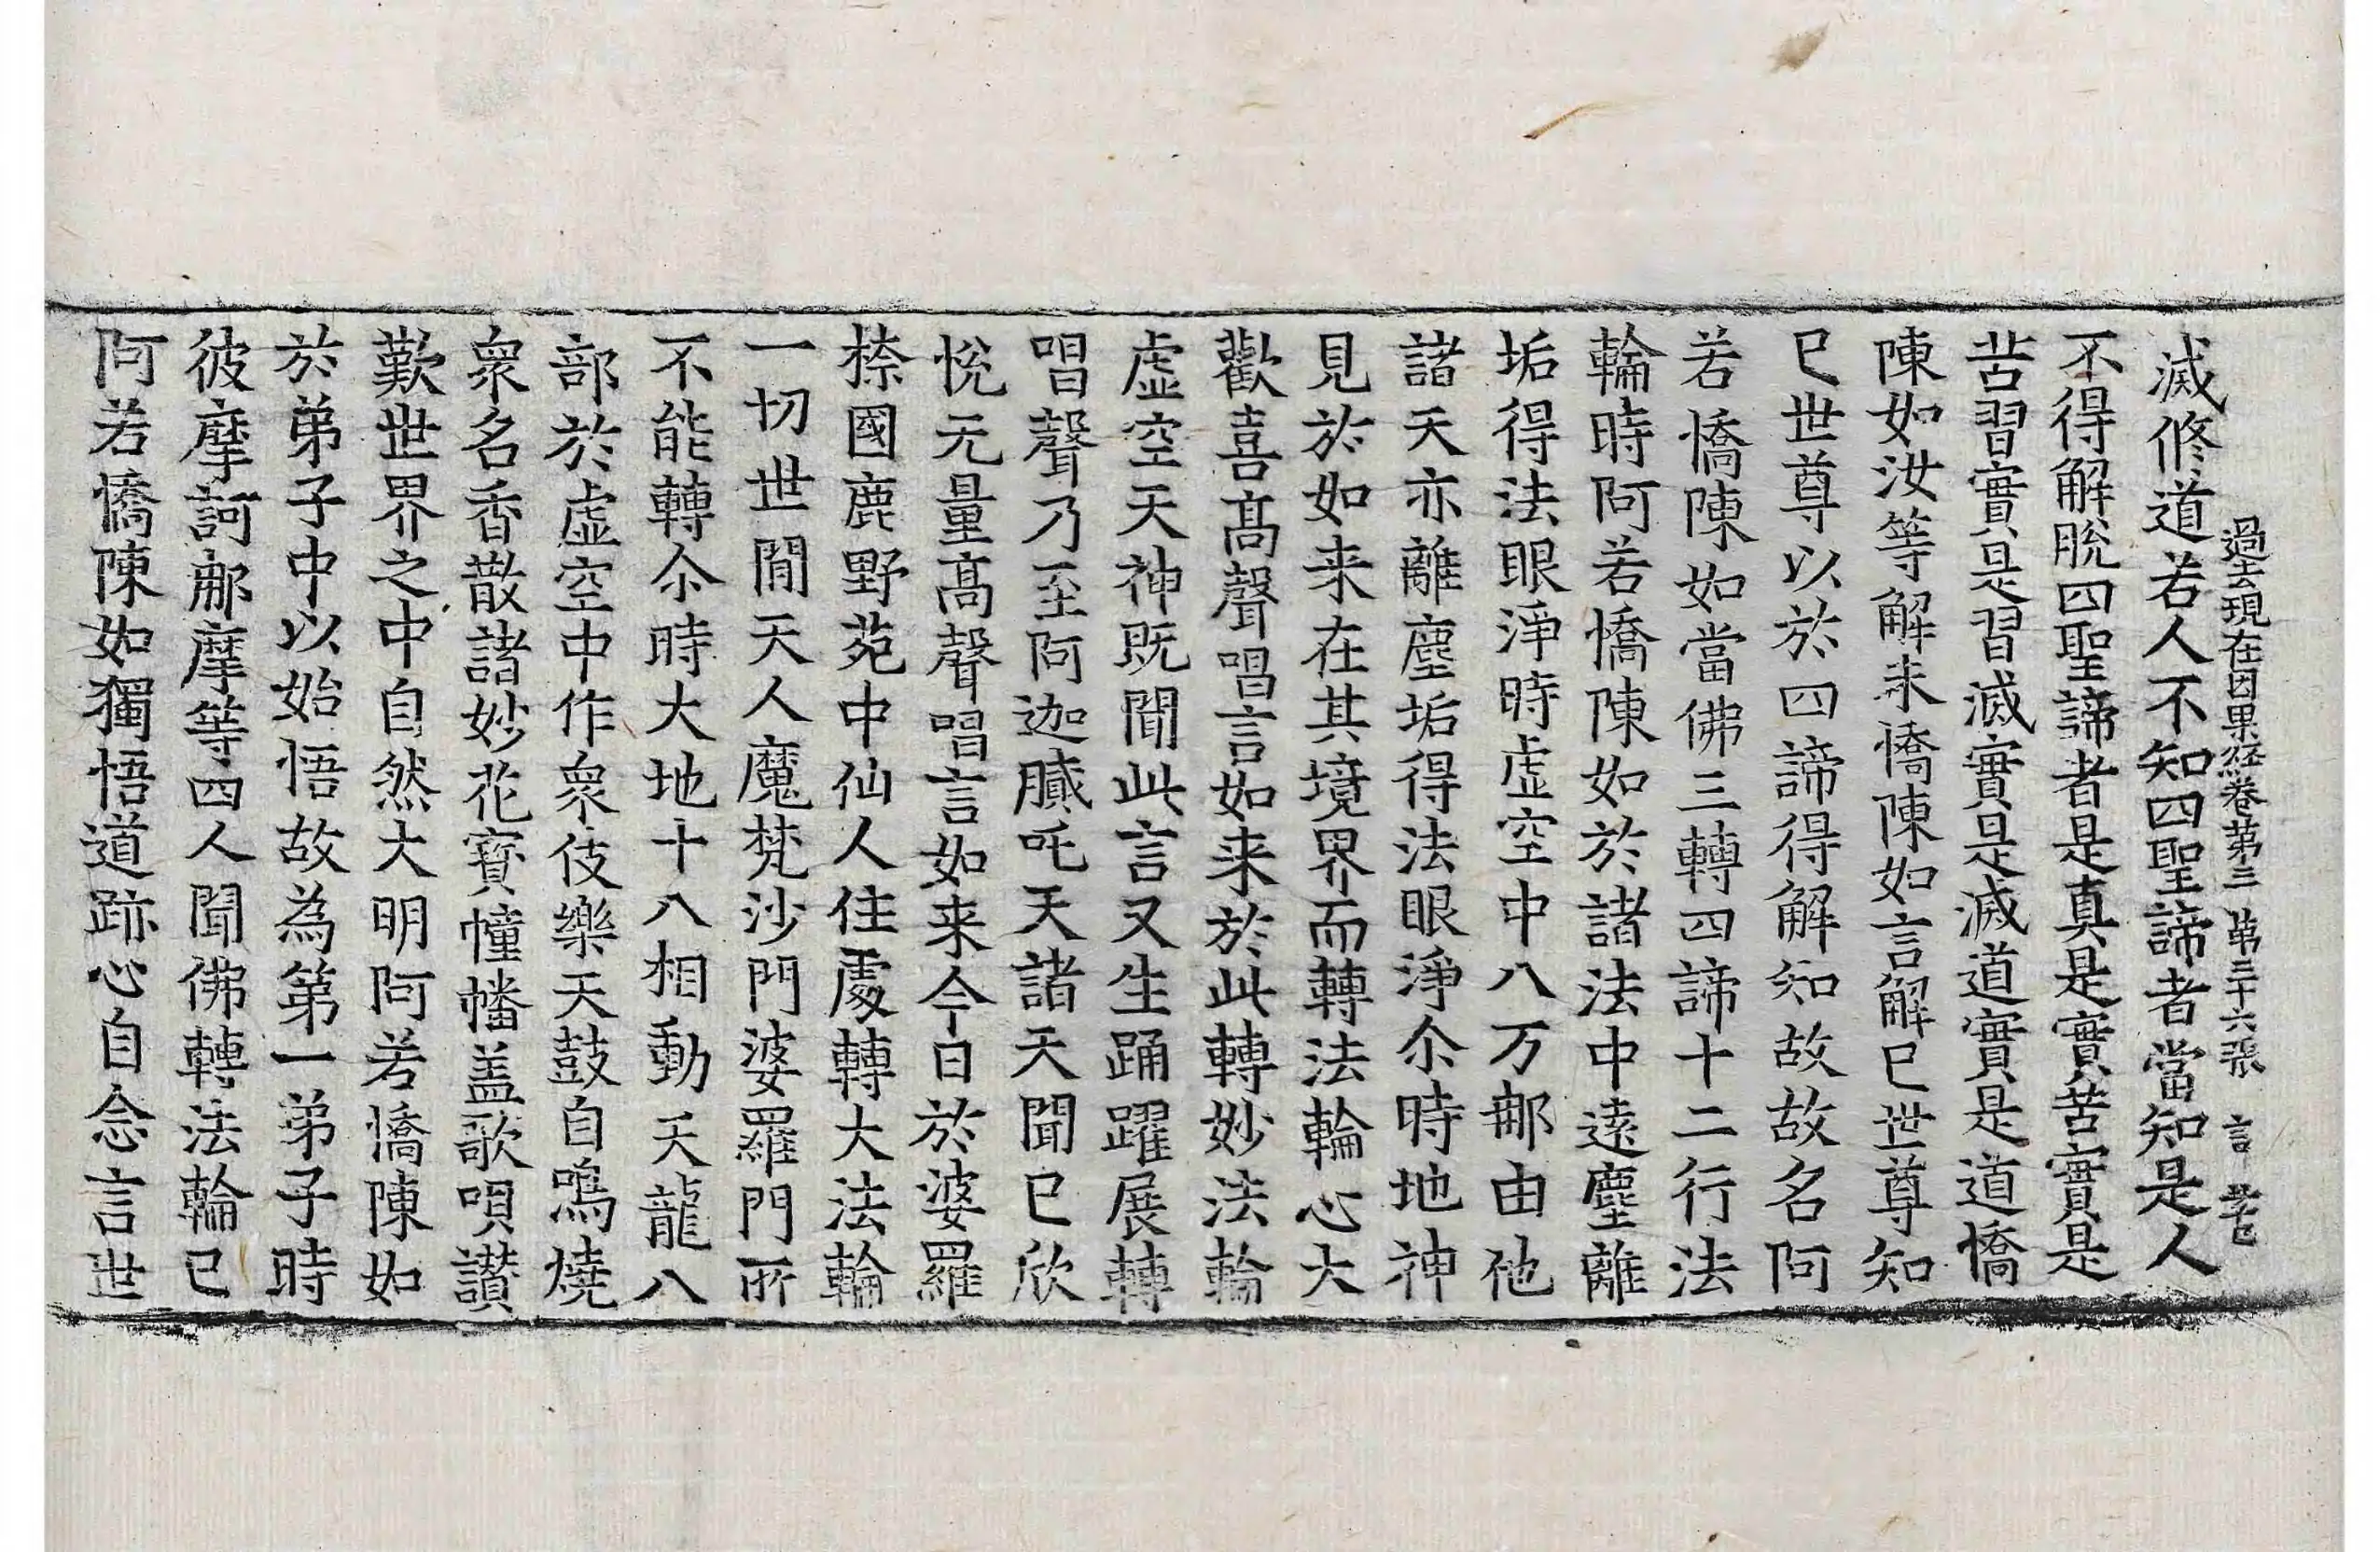 過去現在因果経卷第三 第三十六張 言
滅修道若人不知四聖諦者當知是人
不得解脫四聖諦者是真是實苦實是
苦習實是習滅實是滅道實是道憍
陳如汝等解未憍陳如言解已世尊知
已世尊以於四諦得解知故故名阿
若憍陳如當佛三轉四諦十二行法
輪時阿若憍陳如於諸法中遠塵離
垢得法眼淨時虛空中八万那由他
諸天亦離塵垢得法眼淨尒時地神
見於如来在其境界而轉法輪心大
歡喜髙聲唱言如来於此轉妙法輪
虛空天神既聞此言又生踊躍展轉
唱聲乃至阿迦膩吒天諸天聞已欣
悅无量髙聲唱言如来今日於婆羅
㮈國鹿野苑中仙人住處轉大法輪
一切世間天人魔梵沙門婆羅門所
不能轉尒時大地十八相動天龍八
部於虛空中作衆伎樂天鼓自鳴燒
衆名香散諸妙花寳幢幡盖歌唄讃
歎世界之中自然大明阿若憍陳如
於弟子中以始悟故為第一弟子時
彼摩訶那摩等四人聞佛轉法輪已
阿若憍陳如獨悟道跡心自念言世